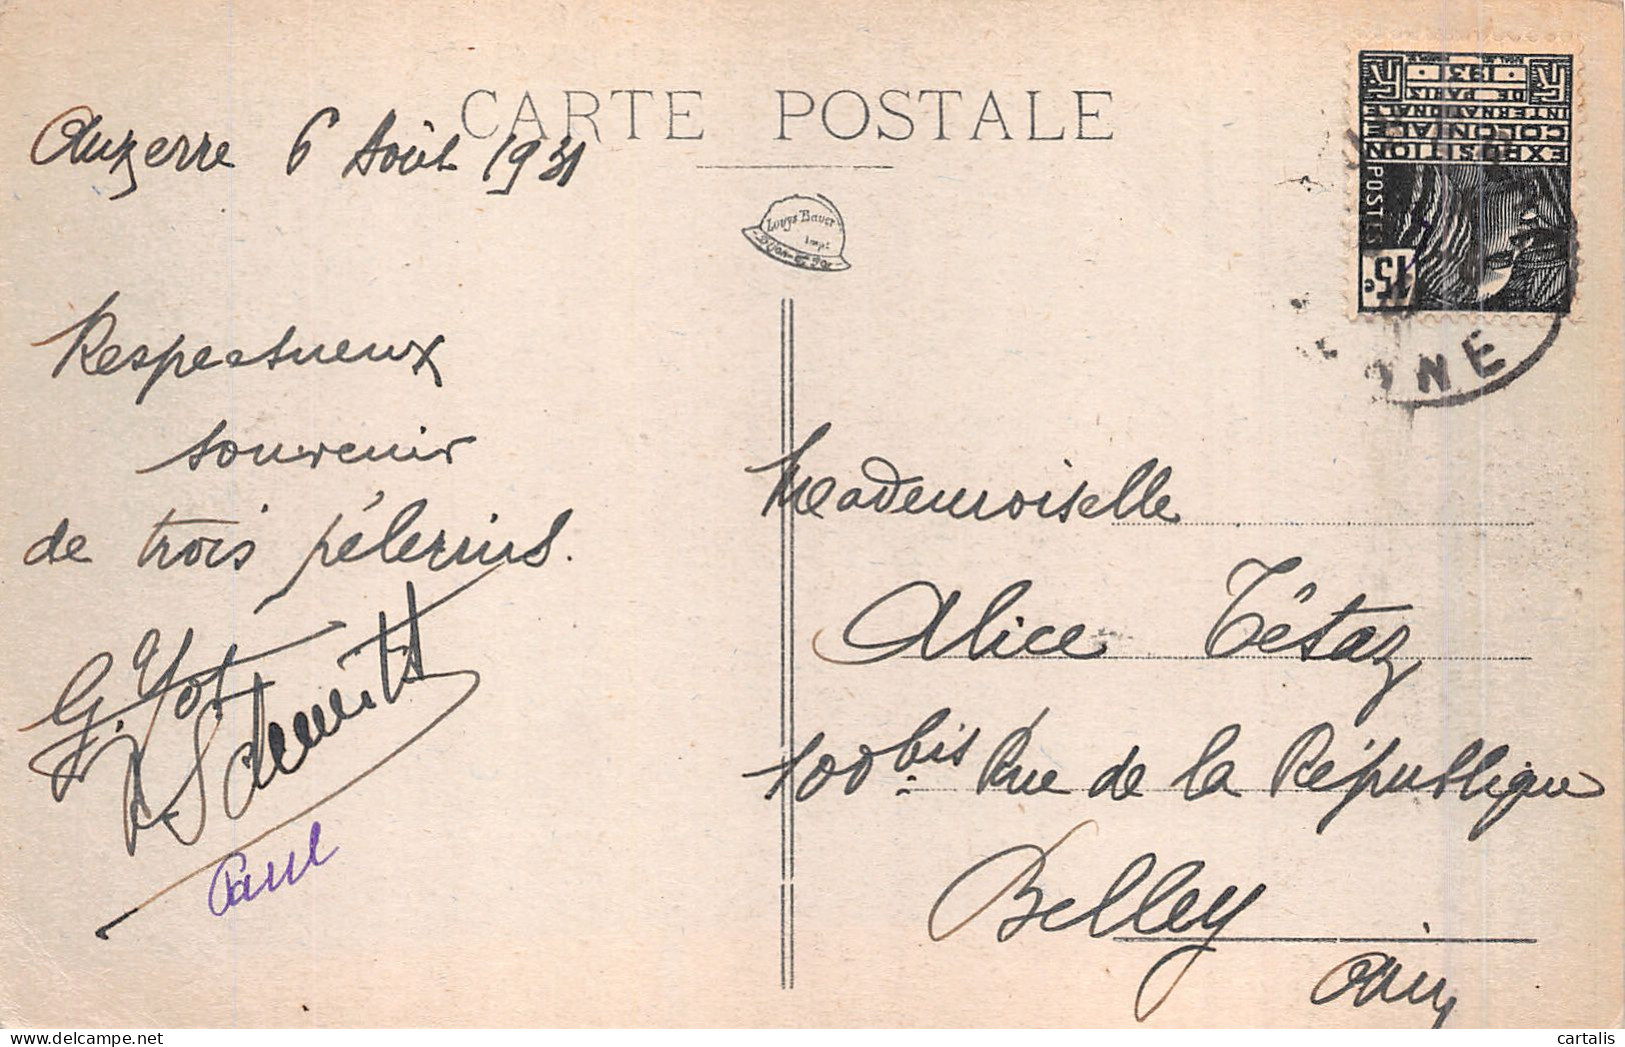 CARTE POSTALE
Auxerre 6 Août 1931
Louys Bauer
Impr
Dijon
Respectueux
souvenir
de trois pélerins.
G.
Schmitt
Paul
EXPOSITION
COLONIALE
INTERNATIONALE
DE PARIS
1931
POSTES
15c
NNE
Mademoiselle
Alice Tétaz
100 bis Rue de la République
Belley
Ain
cartalis